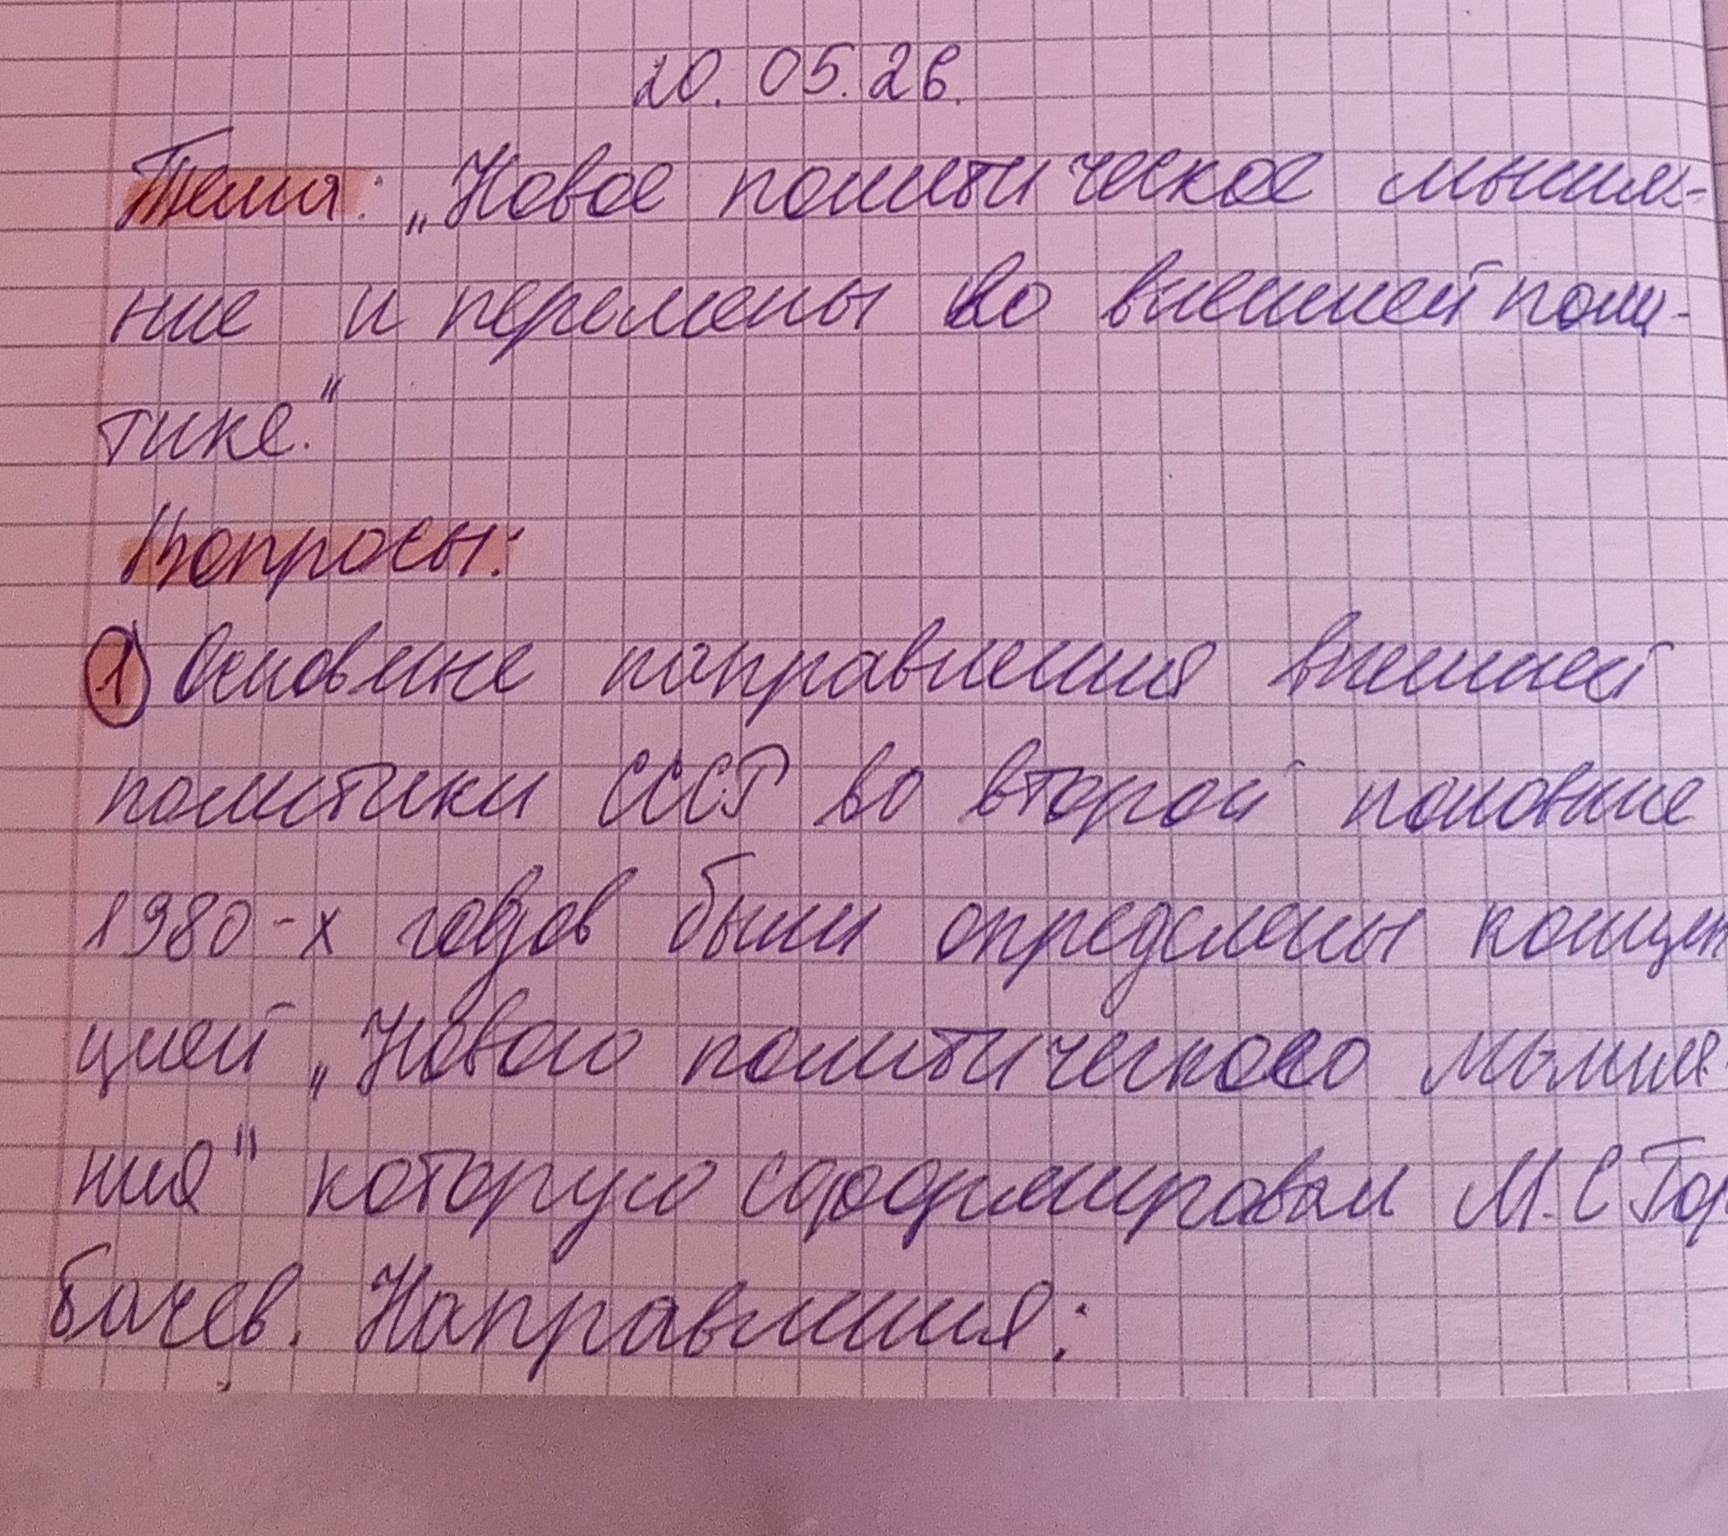 20.05.26.
Тема: „Новое политическое мышле-
ние и перемены во внешней поли-
тике."
Вопросы:
1) Основные направления внешней
политики СССР во второй половине
1980-х годов были определены концеп
цией „Нового политического мышле-
ния" которую сформировал М.С Гор
бачев. Направления: